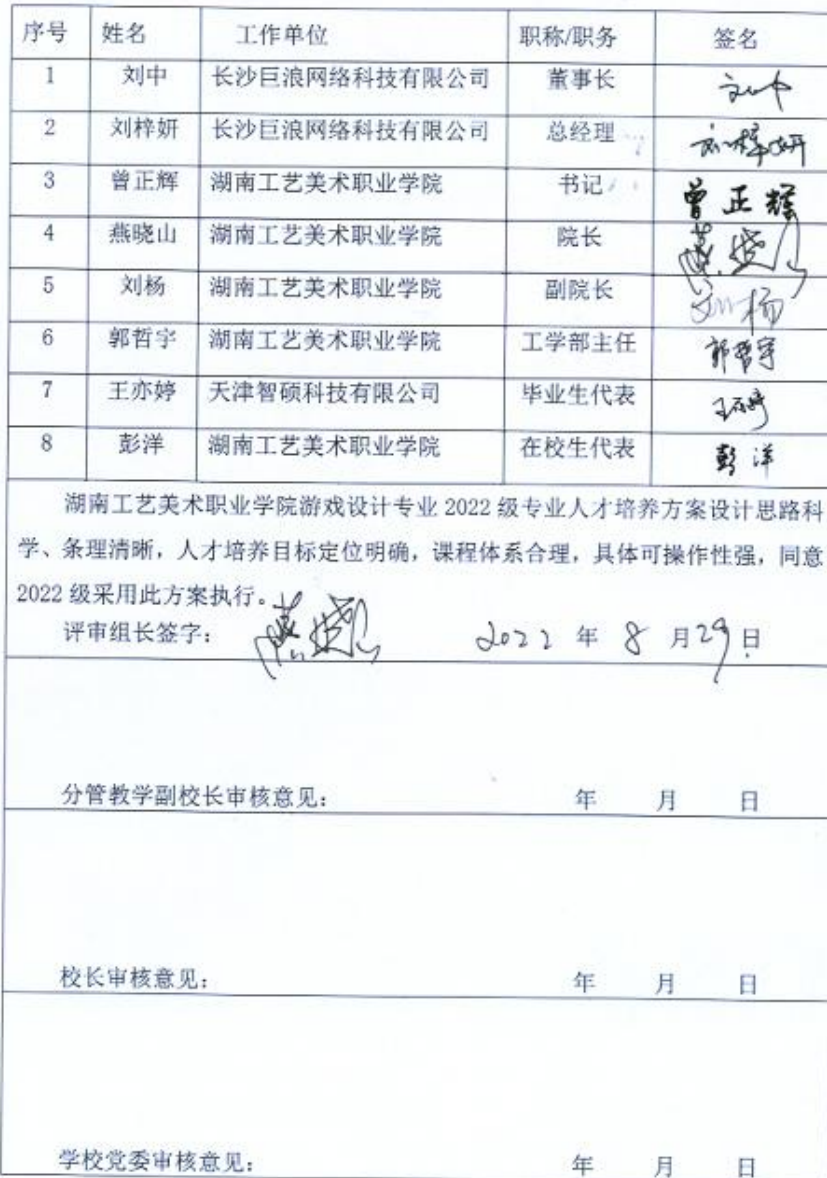 序号 姓名 工作单位 职称/职务 签名
1 刘中 长沙巨浪网络科技有限公司 董事长 刘中
2 刘梓妍 长沙巨浪网络科技有限公司 总经理 刘梓妍
3 曾正辉 湖南工艺美术职业学院 书记 曾正辉
4 燕晓山 湖南工艺美术职业学院 院长 燕晓山
5 刘杨 湖南工艺美术职业学院 副院长 刘杨
6 郭哲宇 湖南工艺美术职业学院 工学部主任 郭哲宇
7 王亦婷 天津智硕科技有限公司 毕业生代表 王亦婷
8 彭洋 湖南工艺美术职业学院 在校生代表 彭洋
湖南工艺美术职业学院游戏设计专业 2022 级专业人才培养方案设计思路科
学、条理清晰，人才培养目标定位明确，课程体系合理，具体可操作性强，同意
2022 级采用此方案执行。
评审组长签字： 燕晓山 2022 年 8 月 29 日
分管教学副校长审核意见： 年 月 日
校长审核意见： 年 月 日
学校党委审核意见： 年 月 日